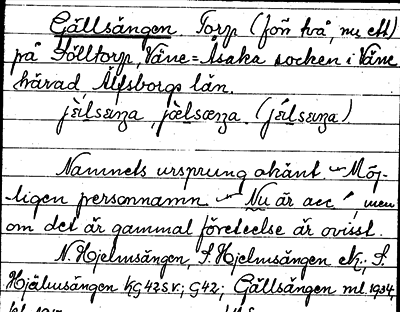 Gällsängen. Torp (förr två, nu ett)
på Sölltorp, Väne=Åsaka socken i Väne
härad Älfsborgs län.
Namnets ursprung okänt. - Möj-
ligen personnamn - Nu är acc ´, men
om det är gammal företeelse är ovisst.
N. Hjelmsängen, S. Hjelmsängen ek.; S.
Hjälmsängen KG42SV; G42; Gällsängen ml. 1934,